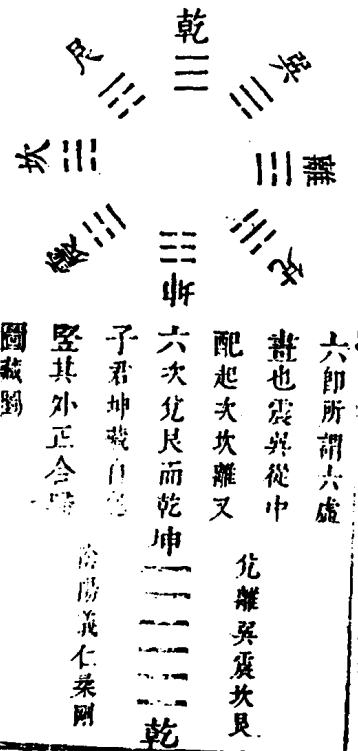 乾
巽
離
兌
坤
震
坎
艮
六卽所謂六虛
畫也震巽從中
配起次坎離又
六次兌艮而乾
子君坤藏自
竪其外正合
圖藏
坤
兌離巽震坎艮
陰陽義仁柔剛
乾